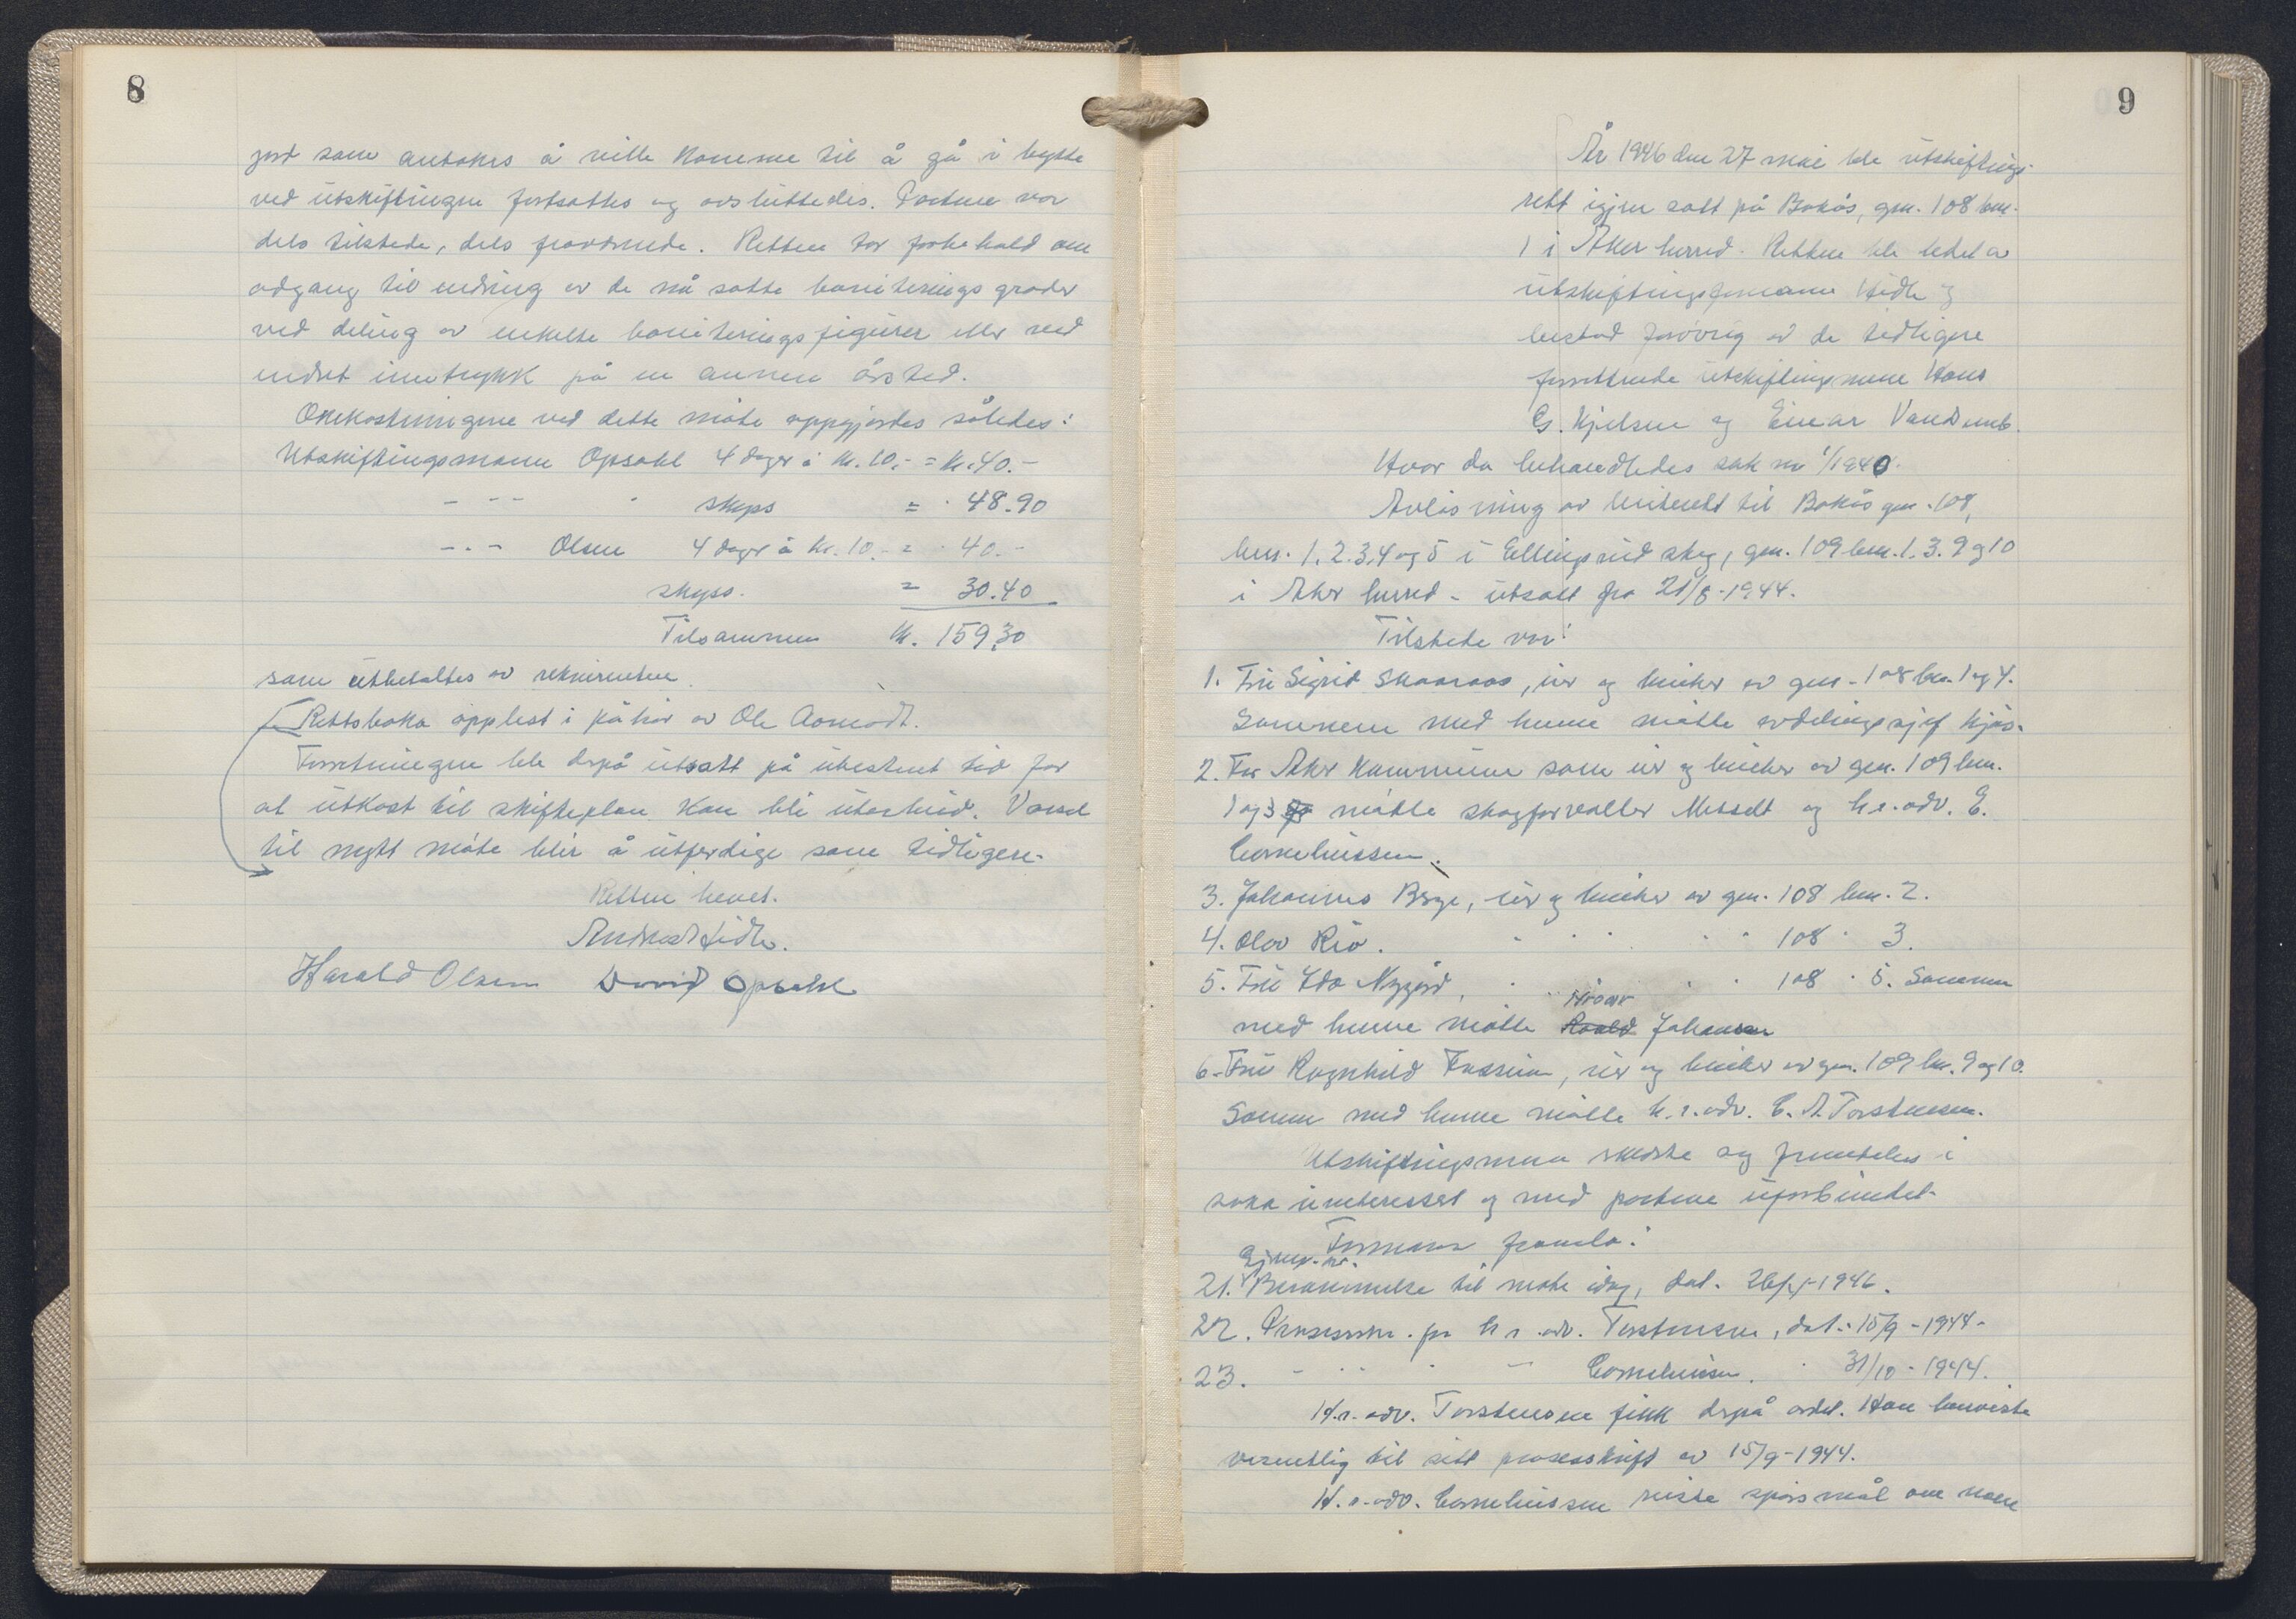 8
jord som antakes å ville komme til å gå i bytte
ved utskiftingen fortsattes og avsluttedes. Partene var
dels tilstede, dels fraværende. Retten tar forbehold om
adgang til endring av de nå satte boniteringsgrader
ved deling av enkelte boniteringsfigurer eller ved
endret inntrykk på en annen årstid.
Omkostningene ved dette møte oppgjordes således:
Utskiftingsmann Opsahl 4 dager à kr. 10.- = kr. 40.-
- - - " skyss = " 48.90
- - - Olsen 4 dager à kr. 10.- = " 40.-
skyss. = 30.40
Tilsammen kr. 159,30
som utbetaltes av rekvirenten.
Rettsboka opplest i påhør av Ole Aamodt.
Forretningen ble derpå utsatt på ubestemt tid for
at utkast til skifteplan kan bli utarbeid. Varsel
til nytt møte blir å utferdige som tidligere.
Retten hevet.
Andreas Hidle.
Harald Olsen David Opsahl
9
År 1946 den 27 mai ble utskiftings-
rett igjen satt på Bakås, gnr. 108 bnr.
1 i Aker herred. Retten ble ledet av
utskiftingsformann Hidle og
bestod forøvrig av de tidligere
forrettende utskiftingsmenn Hans
G. Kjelsen og Einar
Hvor da behandledes sak nr 1/1940.
Avløsning av beiterett til Bakås gnr. 108,
bnr. 1, 2, 3, 4 og 5 i Ellingsrud skog, gnr. 109 bnr. 1, 3, 9 og 10
i Aker herred - utsatt fra 21/8-1944.
Tilstede var:
1. Fru Sigrid Skaaraas, eier og bruker av gnr. 108 bnr. 1 og 4.
Sammen med henne møtte avdelingssjef Kjøs.
2. For Aker kommune som eier og bruker av gnr. 109 bnr.
1 og 3 møtte skogforvalter Messelt og h.r.adv. E.
Corneliussen.
3. Johannes Berge, eier og bruker av gnr. 108 bnr. 2.
4. Olav Rio. " " " " " 108 " 3.
5. Fru Ida Nygård, " " " " 108 " 5. Sammen
med henne møtte Hroar Johansen
6. Fru Ragnhild Fossum, eier og bruker av gnr. 109 bnr. 9 og 10.
Sammen med henne møtte h.r.adv. C. A. Torstensen.
Utskiftingsmenn erklærte seg fremdeles i
saka uinteresset og med partene uforbundet.
Formann framla:
Gjenp. av
21. Berammelse til møte idag, dat. 26/4-1946.
22. Prosesskr. fra h.r.adv. Torstensen, dat. 15/9-1944.
23. - " " " - Corneliussen. " 31/10-1944.
H.r.adv. Torstensen fikk derpå ordet. Han henviste
vesentlig til sitt prosesskrift av 15/9-1944.
H.r.adv. Corneliussen reiste spørsmål om noen